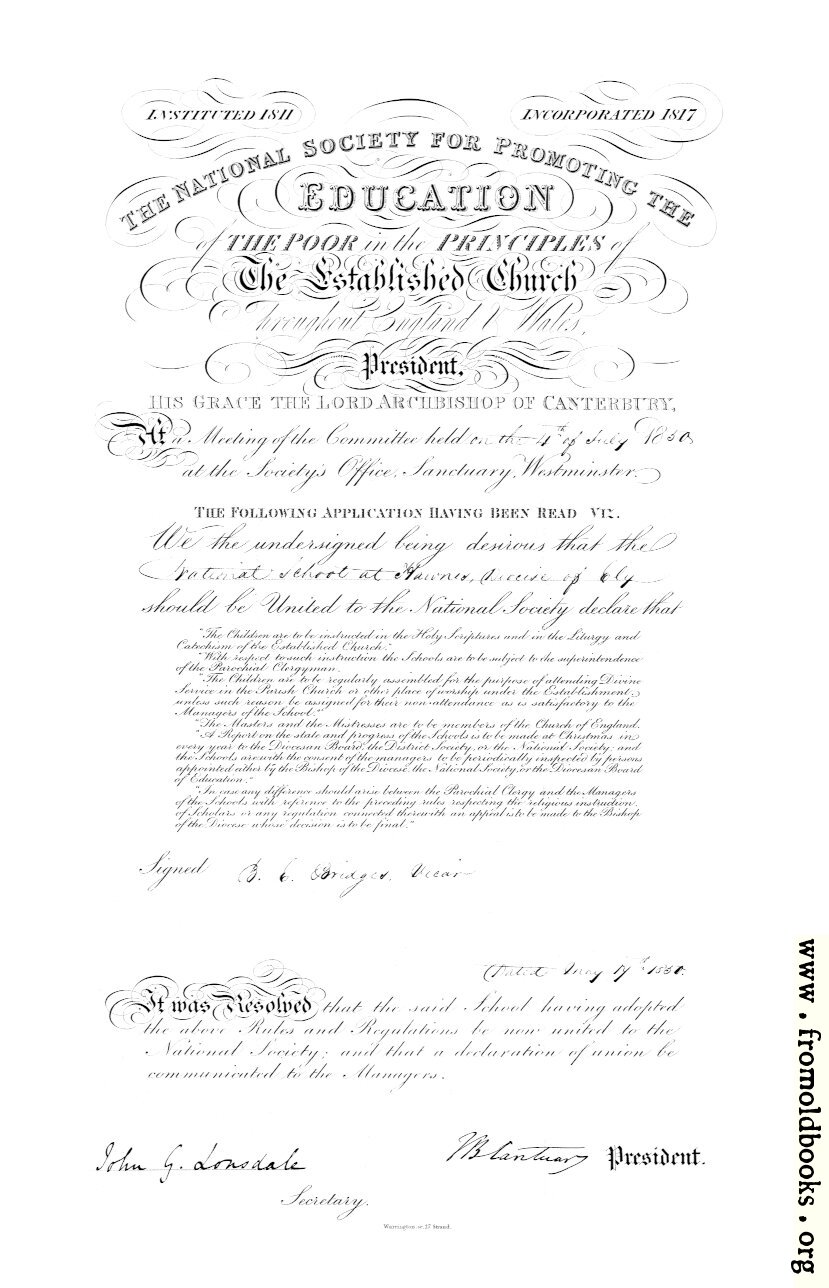 INSTITUTED 1811
INCORPORATED 1817
THE NATIONAL SOCIETY FOR PROMOTING THE
EDUCATION
of THE POOR in the PRINCIPLES of
The Established Church
Throughout England & Wales,
President,
HIS GRACE THE LORD ARCHBISHOP OF CANTERBURY,
At a Meeting of the Committee held on the 4th of July 1850
at the Society's Office, Sanctuary, Westminster.
THE FOLLOWING APPLICATION HAVING BEEN READ VIZ.
We the undersigned being desirous that the
National School at Hawnes, Diocese of Ely
should be United to the National Society declare that
"The Children are to be instructed in the Holy Scriptures and in the Liturgy and
Catechism of the Established Church."
"With respect to such instruction the Schools are to be subject to the superintendence
of the Parochial Clergyman.
"The Children are to be regularly assembled for the purpose of attending Divine
Service in the Parish Church or other place of worship under the Establishment,
unless such reason be assigned for their non-attendance as is satisfactory to the
Managers of the School."
"The Masters and the Mistresses are to be members of the Church of England.
"A Report on the state and progress of the Schools is to be made at Christmas in
every year to the Diocesan Board, the District Society, or the National Society; and
the Schools are with the consent of the managers to be periodically inspected by persons
appointed either by the Bishop of the Diocese, the National Society, or the Diocesan Board
of Education."
"In case any difference should arise between the Parochial Clergy and the Managers
of the Schools with reference to the preceding rules respecting the religious instruction
of Scholars or any regulation connected therewith an appeal is to be made to the Bishop
of the Diocese whose decision is to be final."
Signed B. C. Bridges, Vicar
Dated May 17th 1850.
It was Resolved that the said School having adopted
the above Rules and Regulations be now united to the
National Society; and that a declaration of union be
communicated to the Managers.
John G. Lonsdale
JB Cantuar President.
Secretary.
Warrington sc. 27 Strand.
www.fromoldbooks.org